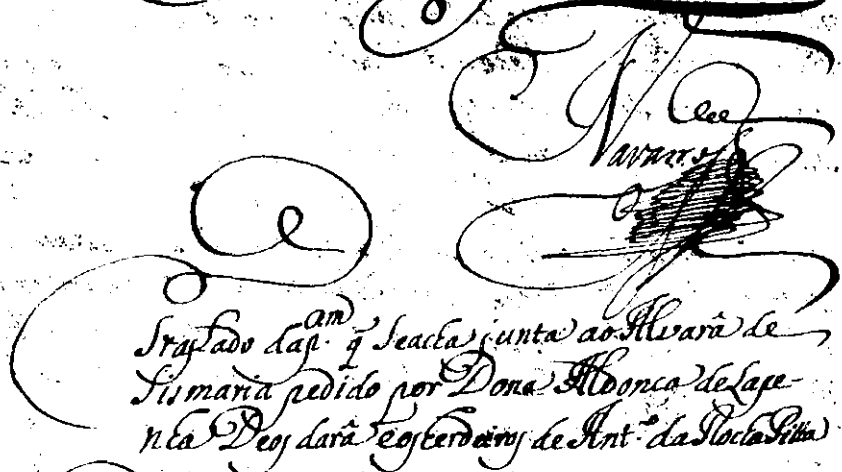 Navarro
Traslado da p.am q̃ se acha junta ao Alvarâ de
Sismaria pedido por Dona Aldonca de Lape-
nha Deos darâ e os herdeiros de Ant.º da Rocha Pitta